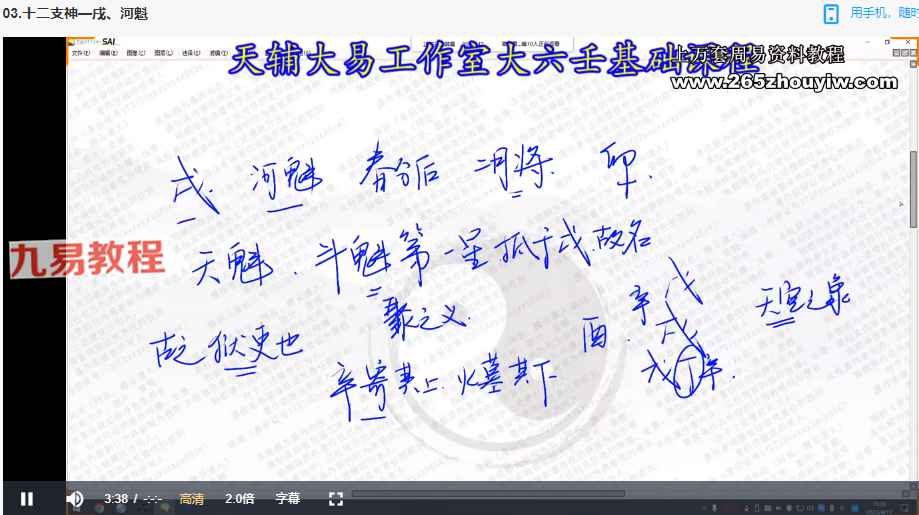 03.十二支神—戌、河魁
用手机，随时
SAI
天辅大易工作室大六壬基础课程
上万套周易资料教程
www.265zhouyiw.com
戌. 河魁 春分后 二月将. 卯.
九易教程
天魁. 斗魁第一星抵于戌,故名
聚之义.
古之狱吏也
酉. 辛戌
戌
戊丁辛.
天空之象
辛寄其上 火墓其下
3:38 / -:-:-
高清
2.0倍
字幕